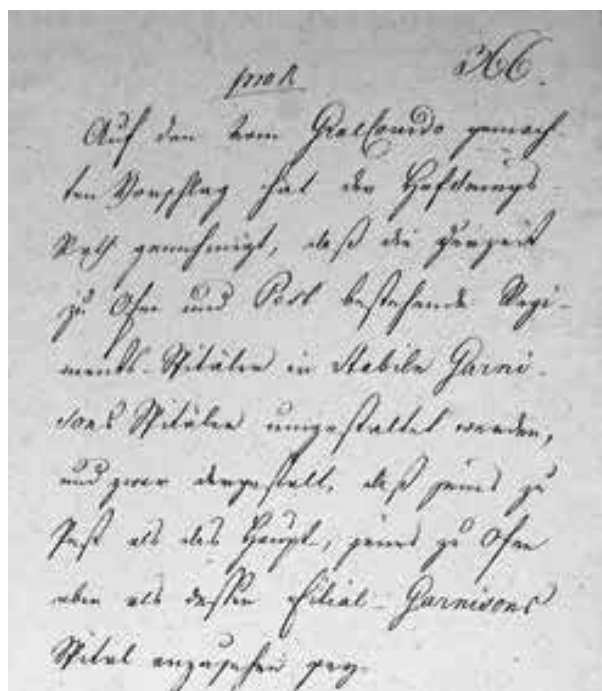 366.
Auf den vom Gralcomdo gemach-
ten Vorschlag hat der Hofkriegs-
Rath genehmigt, daß die derzeit
zu Ofen und Pest bestehende Regi-
ments-Spitäler in stabile Garni-
sons Spitäler umgestaltet werden,
und zwar dergestalt, daß jenes zu
Pest als das Haupt-, jenes zu Ofen
aber als dessen Filial-Garnisons
Spital anzusehen sey.